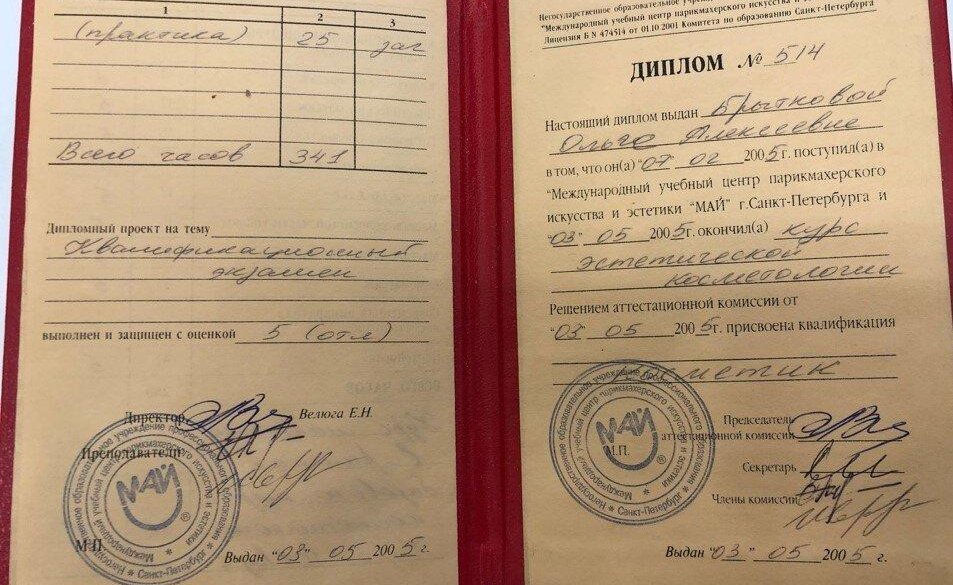 1 2 3
(практика) 25 заг
Всего часов 341
Дипломный проект на тему
Квалификационный
экзамен
выполнен и защищен с оценкой 5 (отл)
Директор Велюга Е.Н.
Преподаватели
МАЙ
М.П.
Выдан "03" 05 2005 г.
Негосударственное образовательное
"Международный учебный центр парикмахерского искусства и
Лицензия Б N 474514 от 01.10 2001 Комитета по образованию Санкт-Петербурга
ДИПЛОМ № 514
Настоящий диплом выдан Брытковой
Ольге Алексеевне
в том, что он(а) "07" 02 2005г. поступил(а) в
"Международный учебный центр парикмахерского
искусства и эстетики "МАЙ" г.Санкт-Петербурга и
"03" 05 2005г. окончил(а) курс
эстетической
косметологии
Решением аттестационной комиссии от
"03" 05 2005г. присвоена квалификация
косметик
Председатель
аттестационной комиссии
МАЙ
М.П.
Секретарь
Члены комиссии
Выдан "03" 05 2005г.